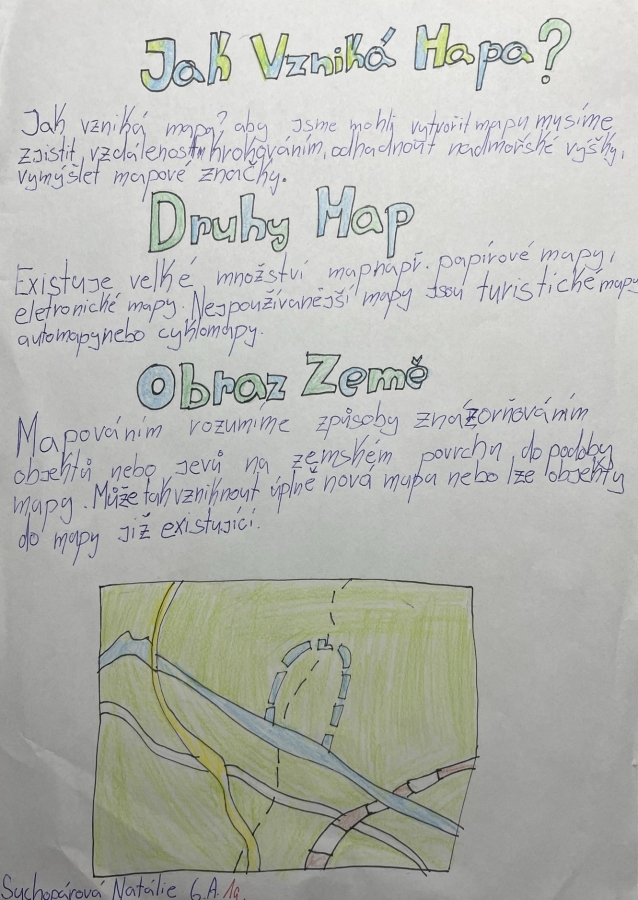 Jak Vzniká Mapa?
Jak vzniká mapa? aby jsme mohli vytvořit mapu musíme
zjistit vzdálenostn krokováním, odhadnout nadmořské výšky,
vymýslet mapové značky.
Druhy Map
Existuje velké množství mapnapř. papírové mapy,
eletronické mapy. Nejpoužívanější mapy jsou turistické mapy
automapynebo cyklomapy.
Obraz Země
Mapováním rozumíme způsoby znázorňováním
objektů nebo jevů na zemském povrchu do podoby
mapy. Může tak vzniknout úplně nová mapa nebo lze objekty
do mapy již existující.
Suchopárová Natálie 6.A 1a.